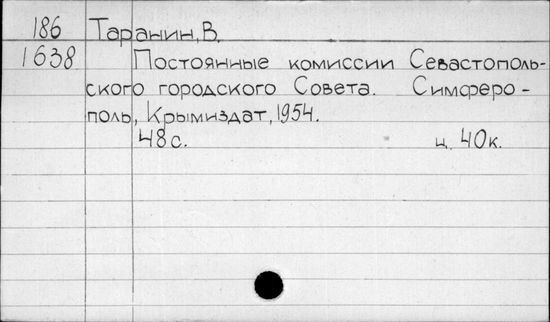 186 Таранин, В.
1638 Постоянные комиссии Севастополь-
ского городского Совета. Симферо-
поль, Крымиздат, 1954.
48 с. ц. 40к.